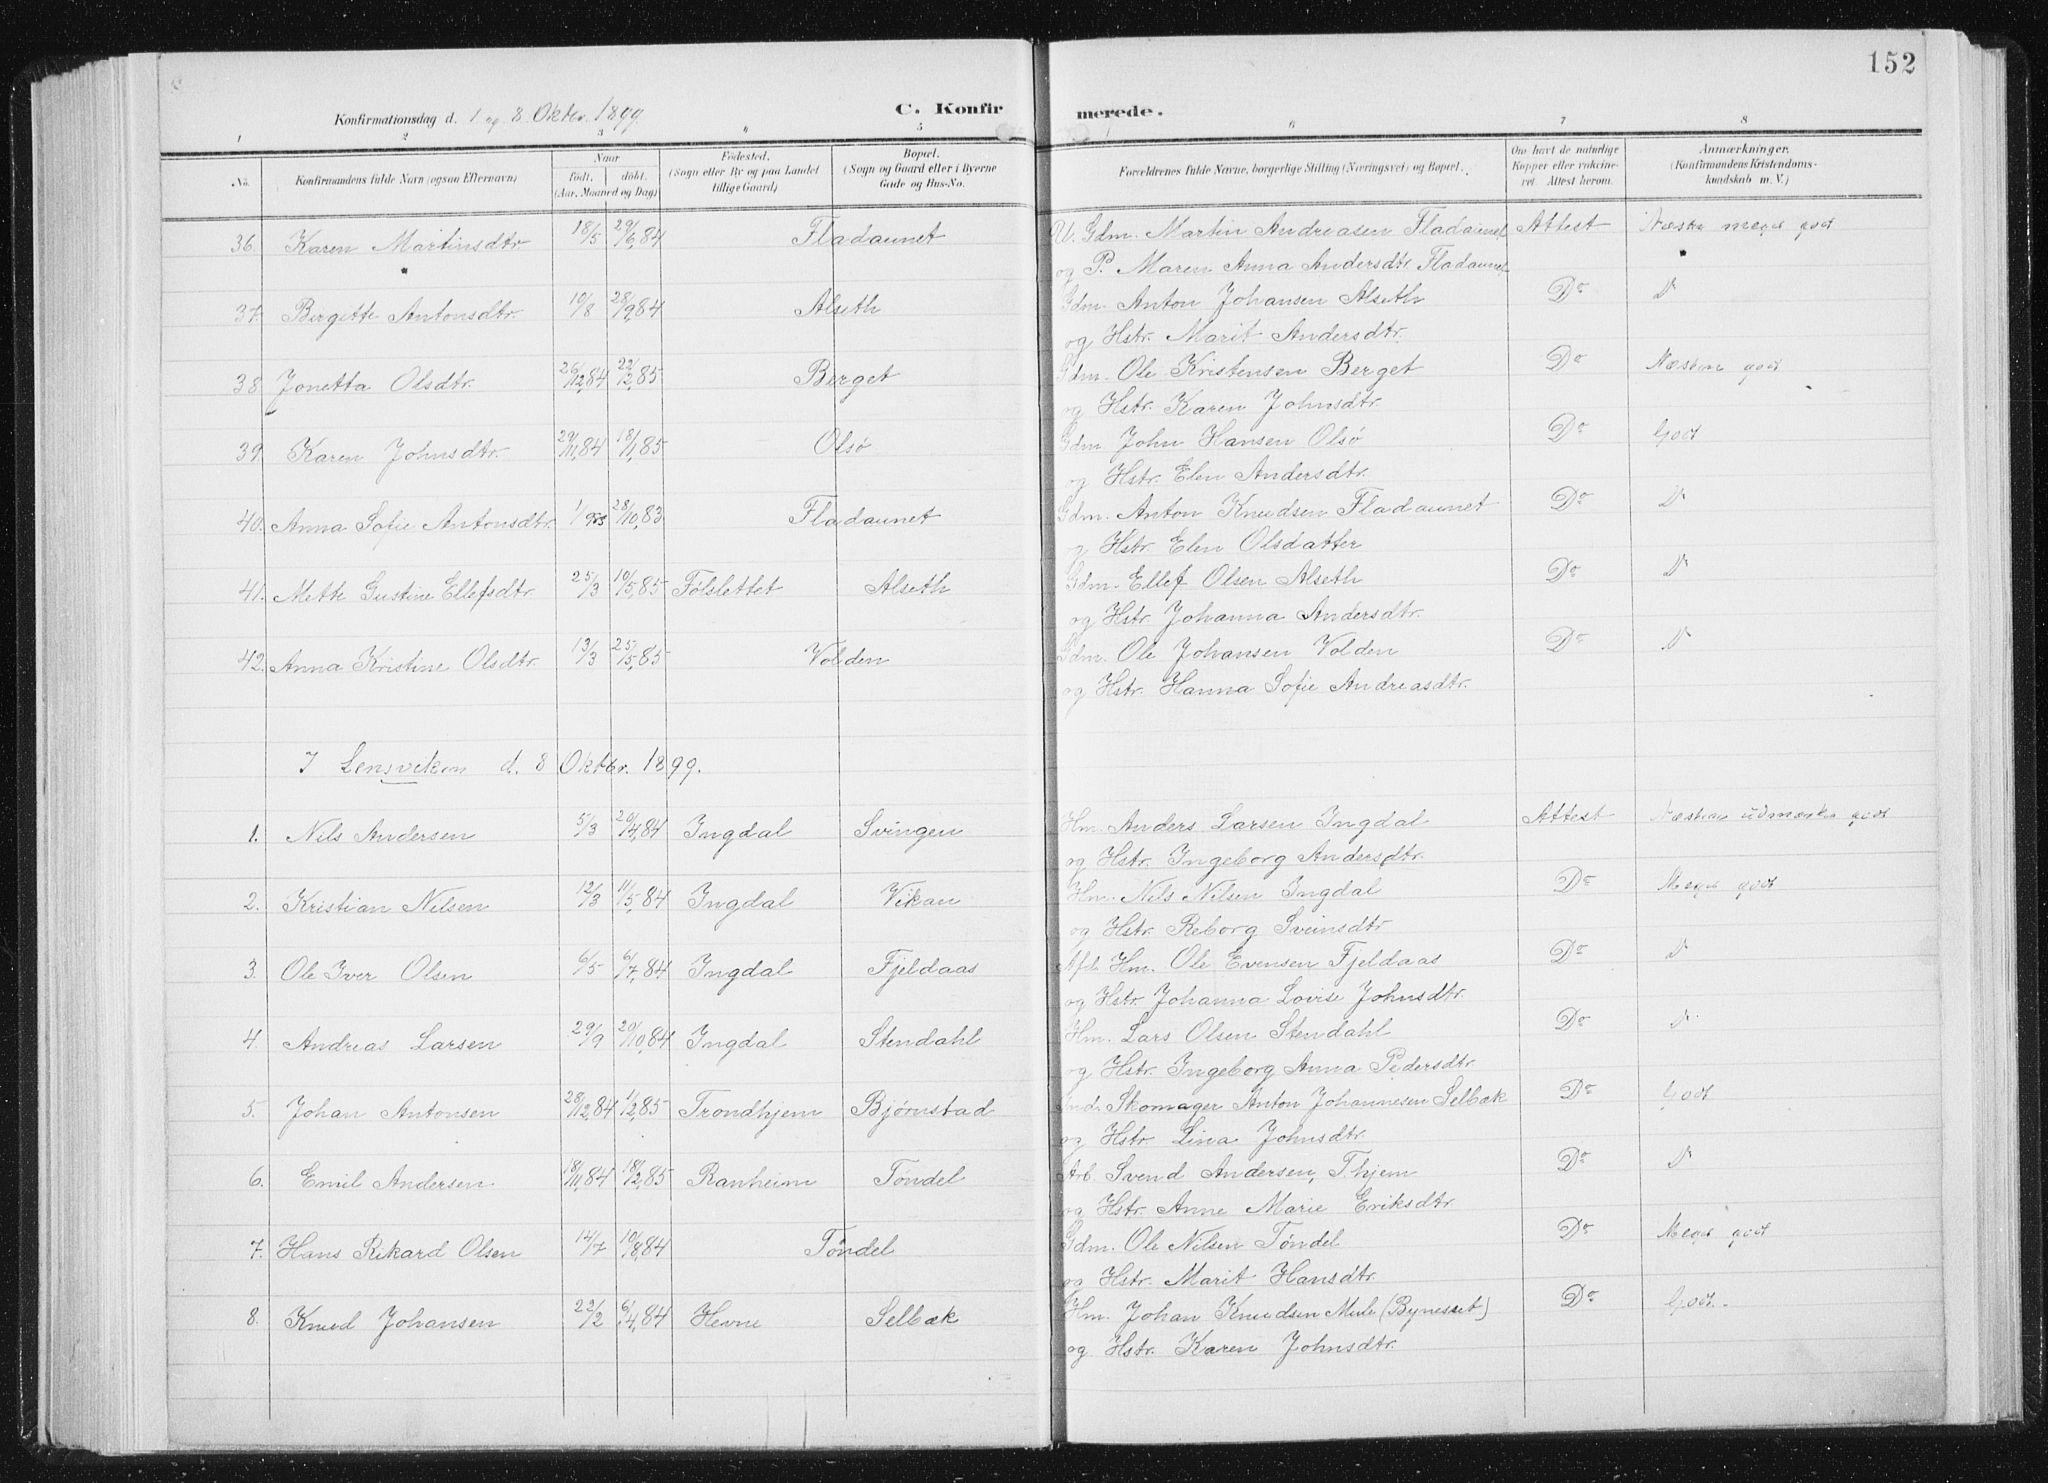 152
Konfirmationsdag d. 1 og 8 Oktbr. 1899. C. Konfirmerede.
1 2 3 4 5 6 7 8
No. Konfirmandens fulde Navn (ogsaa Efternavn) Naar født. døbt. (Aar, Maaned og Dag) Fødested. (Sogn eller By og paa Landet tillige Gaard) Bopæl. (Sogn og Gaard eller i Byerne Gade og Hus-No. Forældrenes fulde Navne, borgerlige Stilling (Næringsvei) og Bopæl. Om havt de naturlige Kopper eller vaccineret. Attest herom. Anmærkninger. (Konfirmandens Kristendomskundskab m. V.)
36. Karen Martinsdtr 18/5 29/6,84 Fladaunet U. Gdm. Martin Andreasen Fladaunet Attest Næsten meget godt
og P. Maren Anna Andersdtr. Fladaunet
37. Birgitte Antonsdtr. 10/8 28/9,84 Alseth Gdm. Anton Johansen Alseth Do D
og Hstr. Marit Andersdtr.
38. Jonetta Olsdtr. 26/12,84 22/2,85 Berget Gdm. Ole Kristensen Berget Do Næsten godt
og Hstr. Karen Johnsdtr.
39. Karen Johnsdtr. 29/11,84 18/1,85 Olsø Gdm. John Hansen Olsø Do Godt
og Hstr. Elen Andersdtr.
40. Anna Sofie Antonsdtr. 28/10,83 Fladaunet Gdm. Anton Knudsen Fladaunet Do D
og Hstr. Elen Olsdatter
41. Mette Gustine Ellefsdtr. 25/3 10/5,85 Følslettet Alseth Gdm. Ellef Olsen Alseth Do D
og Hstr. Johanna Andersdtr.
42. Anna Kristine Olsdtr. 13/3 25/5,85 Volden Gdm. Ole Johansen Volden Do D
og Hstr. Hanna Sofie Andreasdtr.
I Lensviken d. 8 Oktbr. 1899.
1. Nils Andersen 5/3 20/4,84 Ingdal Svingen Hm. Anders Larsen Ingdal Attest Næsten udmærket godt
og Hstr. Ingeborg Andersdtr.
2. Kristian Nilsen 12/3 11/5,84 Ingdal Vikan Hm. Nils Nilsen Ingdal Do Meget godt
og Hstr. Reborg Sveinsdtr
3. Ole Iver Olsen 6/5 6/7,84 Ingdal Fjeldaas Afd. Hm. Ole Evensen Fjeldaas Do D
og Hstr. Johanna Lovise Johnsdtr.
4. Andreas Larsen 29/9 20/10,84 Ingdal Stendahl Hm. Lars Olsen Stendahl Do D
og Hstr. Ingeborg Anna Pedersdtr.
5. Johan Antonsen 28/12,84 1/2,85 Trondhjem Bjørnstad Ind. Skomager Anton Johannesen Selbæk Do Godt
og Hstr. Lina Johnsdtr.
6. Emil Andersen. 18/11,84 18/2,85 Ranheim Tøndel Arb. Svend Andersen, T.hjem Do D
og Hstr. Anne Marie Eriksdtr.
7. Hans Rikard Olsen 14/7 10/8,84 Tøndel Gdm. Ole Nilsen Tøndel Do Meget godt
og Hstr. Marit Hansdtr.
8. Knud Johansen 22/2 6/4,84 Hevne Selbæk Hm. Johan Knudsen Mule (Bynesset) Do Godt.
og Hstr. Karen Johnsdtr.